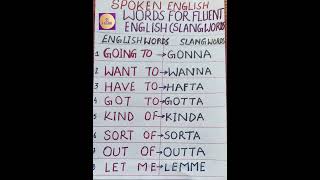 SPOKEN ENGLISH
WORDS FOR FLUENT
ENGLISH (SLANG WORDS)
ENGLISH WORDS SLANG WORDS
1 GOING TO → GONNA
2 WANT TO → WANNA
3 HAVE TO → HAFTA
4 GOT TO → GOTTA
5 KIND OF → KINDA
6 SORT OF → SORTA
7 OUT OF → OUTTA
8 LET ME → LEMME